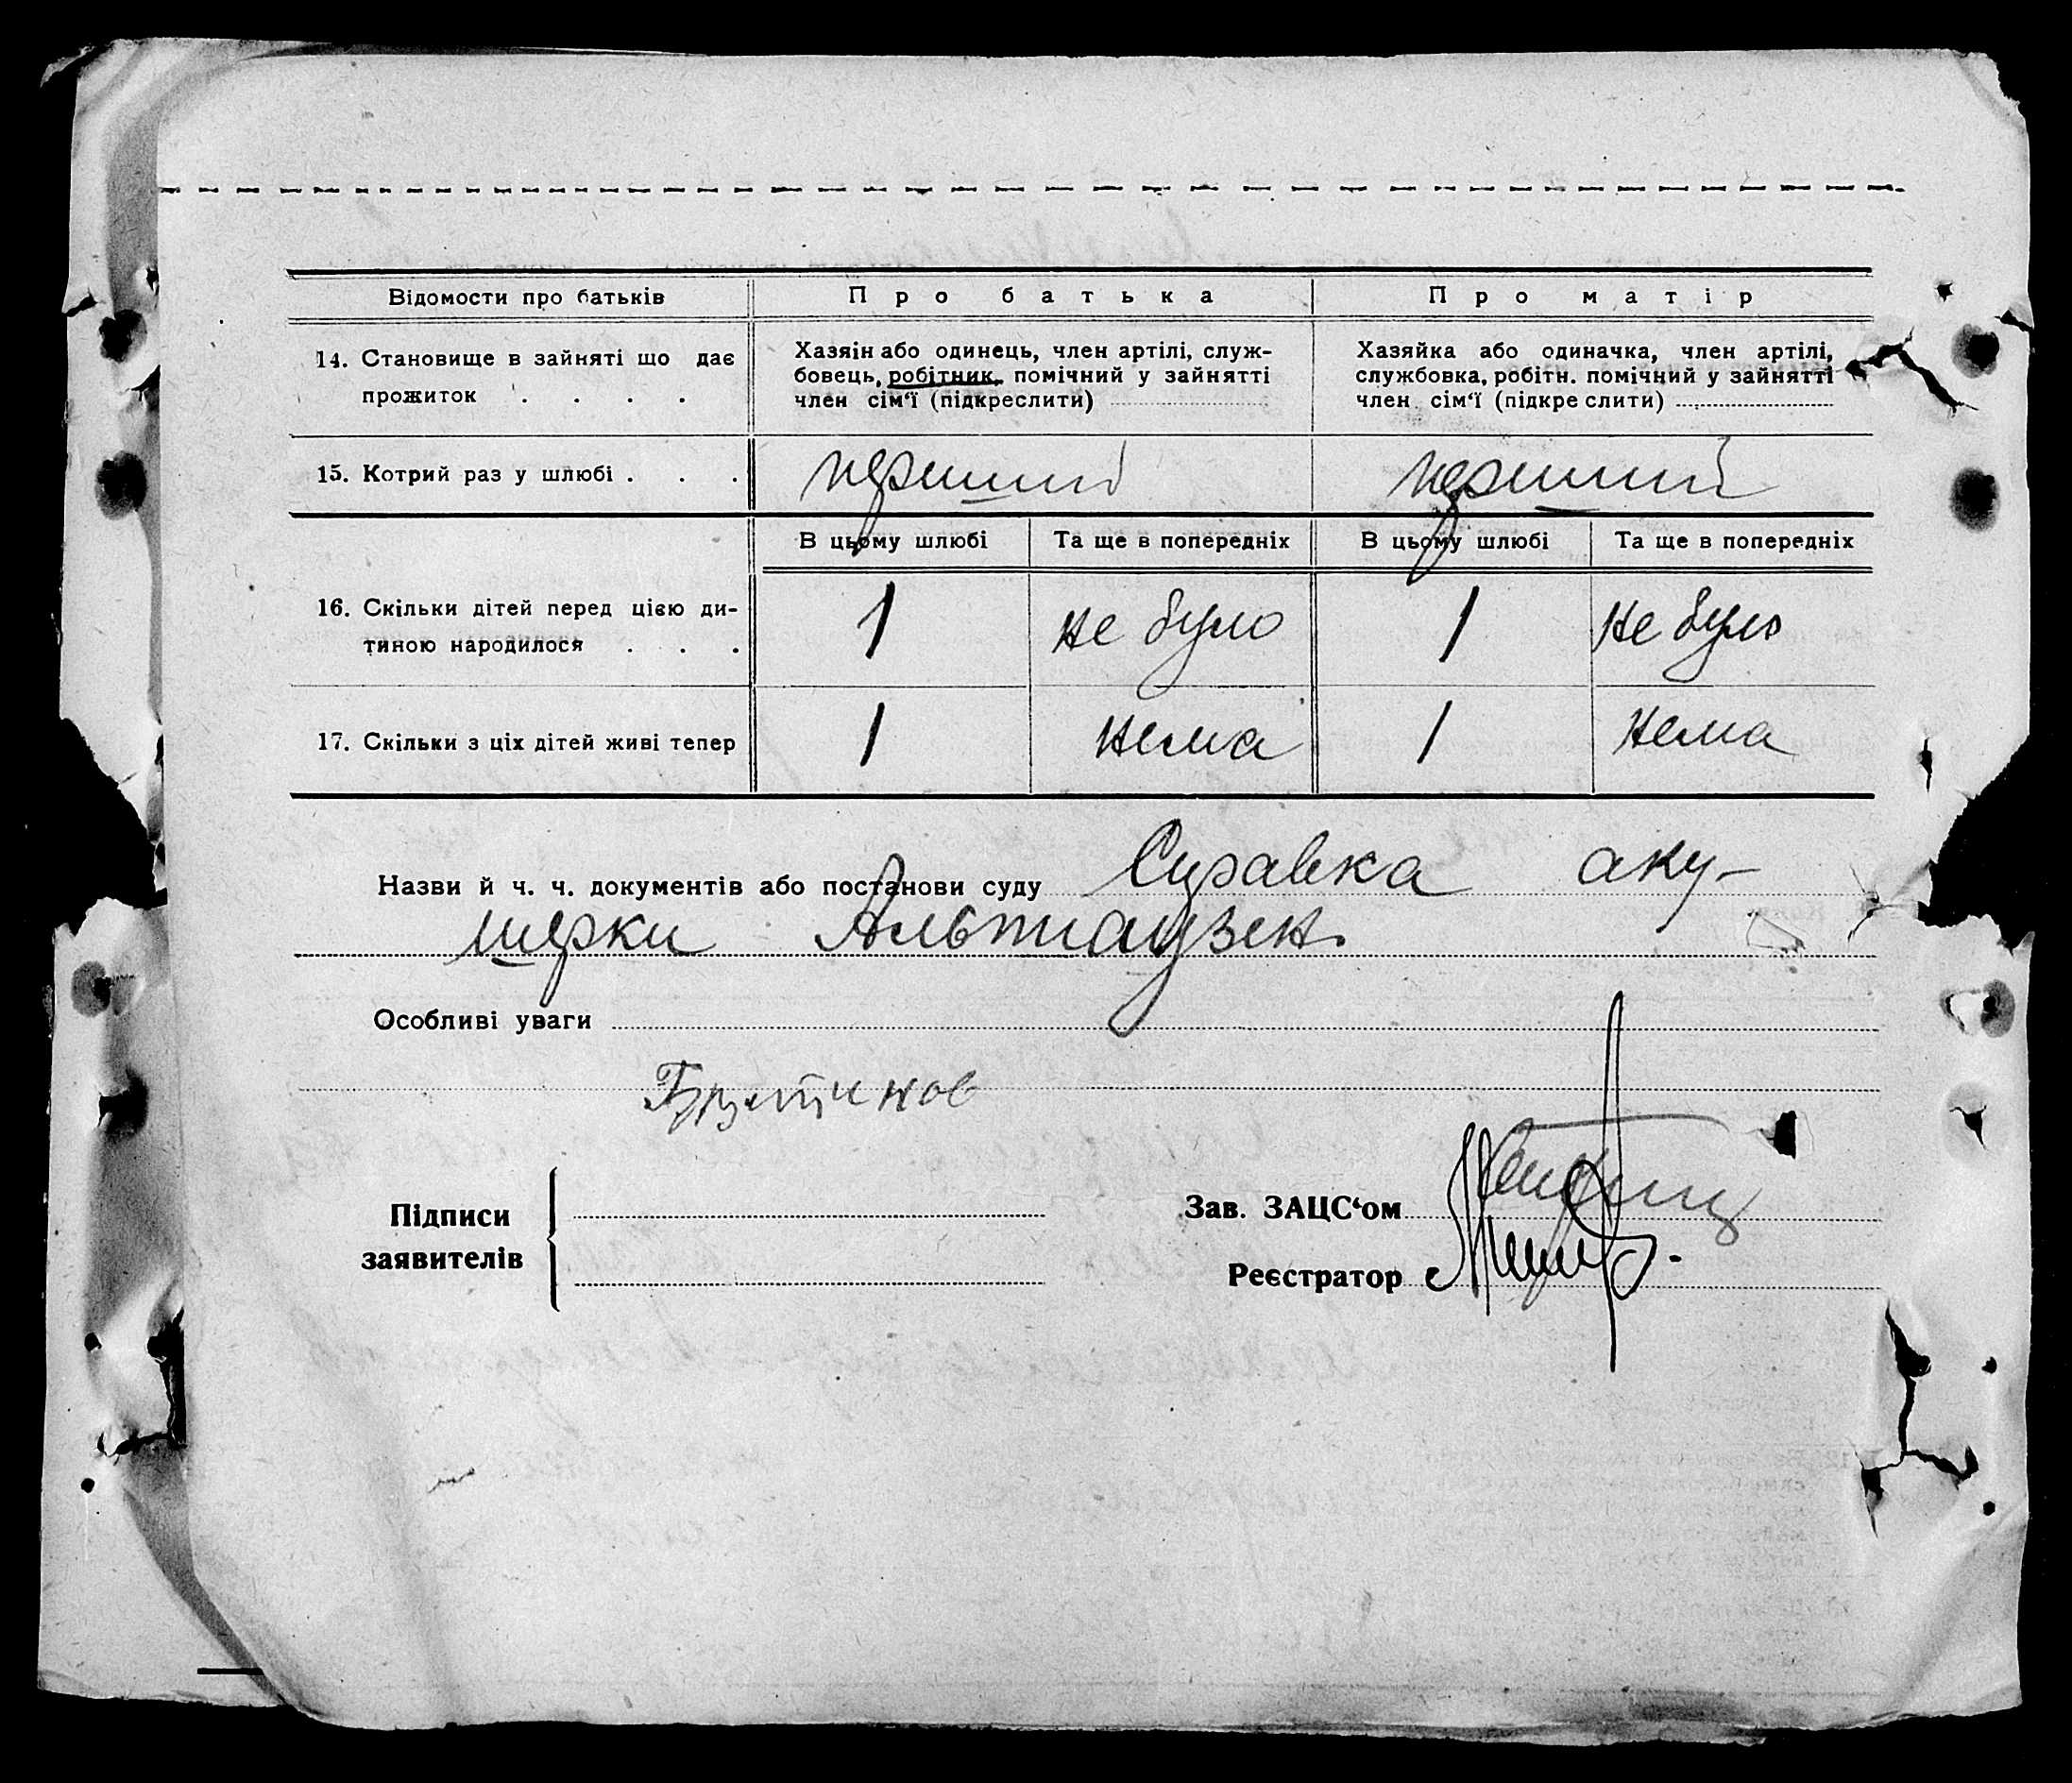 Відомости про батьків
Про батька
Про матір
14. Становище в зайняті що дає
прожиток . . . .
Хазяін або одинець, член артілі, служ-
бовець, робітник, помічний у зайнятті
член сім‘ї (підкреслити)
Хазяйка або одиначка, член артілі,
службовка, робітн. помічний у зайнятті
член сім‘ї (підкреслити)
15. Котрий раз у шлюбі . . .
перший
перший
В цьому шлюбі
Та ще в попередніх
В цьому шлюбі
Та ще в попередніх
16. Скільки дітей перед цією ди-
тиною народилося . . .
1
не було
1
не було
17. Скільки з ціх дітей живі тепер
1
нема
1
нема
Назви й ч. ч. документів або постанови суду Справка аку-
шерки Альтгаузен.
Особливі уваги
Підписи
заявителів
Зав. ЗАЦС‘ом
Реєстратор